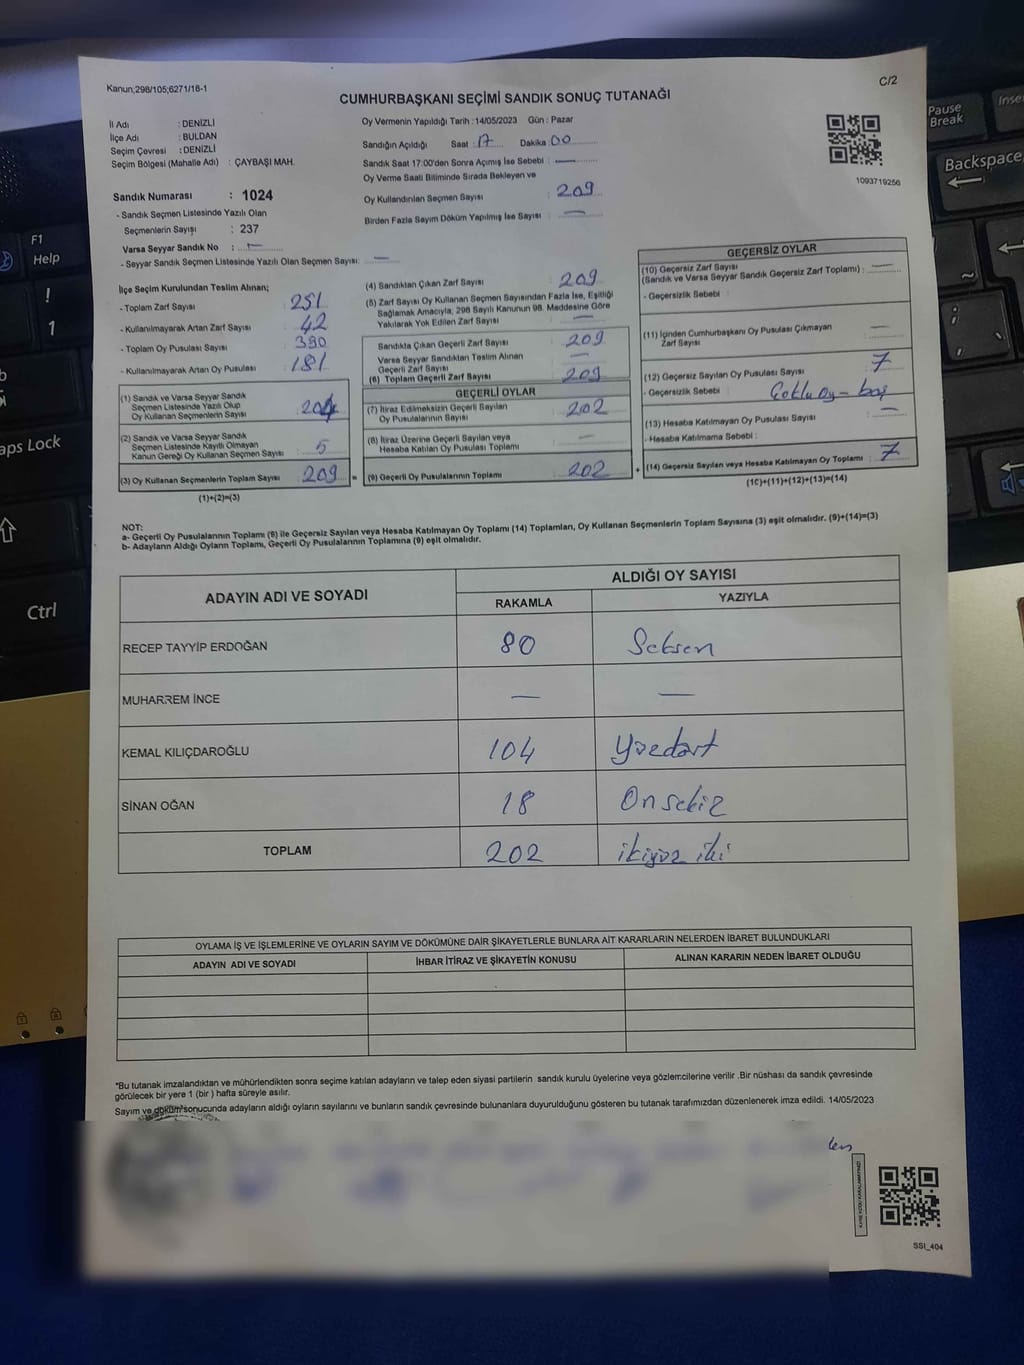 Kanun;298/105;6271/18-1
C/2
CUMHURBAŞKANI SEÇİMİ SANDIK SONUÇ TUTANAĞI
İl Adı : DENİZLİ
İlçe Adı : BULDAN
Seçim Çevresi : DENİZLİ
Seçim Bölgesi (Mahalle Adı) : ÇAYBAŞI MAH.
Sandık Numarası : 1024
- Sandık Seçmen Listesinde Yazılı Olan
Seçmenlerin Sayısı : 237
Varsa Seyyar Sandık No : —
- Seyyar Sandık Seçmen Listesinde Yazılı Olan Seçmen Sayısı: —
Oy Vermenin Yapıldığı Tarih : 14/05/2023 Gün : Pazar
Sandığın Açıldığı Saat : 17 Dakika 00
Sandık Saat 17:00'den Sonra Açımış İse Sebebi : —
Oy Verme Saati Bitiminde Sırada Bekleyen ve
Oy Kullandırılan Seçmen Sayısı : 209
Birden Fazla Sayım Döküm Yapılmış İse Sayısı : —
1093719256
İlçe Seçim Kurulundan Teslim Alınan;
- Toplam Zarf Sayısı : 251
- Kullanılmayarak Artan Zarf Sayısı : 42
- Toplam Oy Pusulası Sayısı : 390
- Kullanılmayarak Artan Oy Pusulası : 181
(1) Sandık ve Varsa Seyyar Sandık
Seçmen Listesinde Yazılı Olup
Oy Kullanan Seçmenlerin Sayısı : 204
(2) Sandık ve Varsa Seyyar Sandık
Seçmen Listesinde Kayıtlı Olmayan
Kanun Gereği Oy Kullanan Seçmen Sayısı : 5
(3) Oy Kullanan Seçmenlerin Toplam Sayısı : 209
(1)+(2)=(3)
(4) Sandıktan Çıkan Zarf Sayısı : 209
(5) Zarf Sayısı Oy Kullanan Seçmen Sayısından Fazla İse, Eşitliği
Sağlamak Amacıyla, 298 Sayılı Kanunun 98. Maddesine Göre
Yakılarak Yok Edilen Zarf Sayısı : —
Sandıkta Çıkan Geçerli Zarf Sayısı : 209
Varsa Seyyar Sandıktan Teslim Alınan
Geçerli Zarf Sayısı : —
(6) Toplam Geçerli Zarf Sayısı : 209
GEÇERLİ OYLAR
(7) İtiraz Edilmeksizin Geçerli Sayılan
Oy Pusulalarının Sayısı : 202
(8) İtiraz Üzerine Geçerli Sayılan veya
Hesaba Katılan Oy Pusulası Toplamı : —
(9) Geçerli Oy Pusulalarının Toplamı : 202
GEÇERSİZ OYLAR
(10) Geçersiz Zarf Sayısı : —
(Sandık ve Varsa Seyyar Sandık Geçersiz Zarf Toplamı) :
- Geçersizlik Sebebi :
(11) İçinden Cumhurbaşkanı Oy Pusulası Çıkmayan
Zarf Sayısı : —
(12) Geçersiz Sayılan Oy Pusulası Sayısı : 7
- Geçersizlik Sebebi : Çoklu oy - boş
(13) Hesaba Katılmayan Oy Pusulası Sayısı : —
- Hesaba Katılmama Sebebi :
(14) Geçersiz Sayılan veya Hesaba Katılmayan Oy Toplamı : 7
(10)+(11)+(12)+(13)=(14)
NOT:
a- Geçerli Oy Pusulalarının Toplamı (9) ile Geçersiz Sayılan veya Hesaba Katılmayan Oy Toplamı (14) Toplamları, Oy Kullanan Seçmenlerin Toplam Sayısına (3) eşit olmalıdır. (9)+(14)=(3)
b- Adayların Aldığı Oyların Toplamı, Geçerli Oy Pusulalarının Toplamına (9) eşit olmalıdır.
ADAYIN ADI VE SOYADI ALDIĞI OY SAYISI
RAKAMLA YAZIYLA
RECEP TAYYİP ERDOĞAN 80 Seksen
MUHARREM İNCE — —
KEMAL KILIÇDAROĞLU 104 Yüzdört
SİNAN OĞAN 18 Onsekiz
TOPLAM 202 ikiyüz iki
OYLAMA İŞ VE İŞLEMLERİNE VE OYLARIN SAYIM VE DÖKÜMÜNE DAİR ŞİKAYETLERLE BUNLARA AİT KARARLARIN NELERDEN İBARET BULUNDUKLARI
ADAYIN ADI VE SOYADI İHBAR İTİRAZ VE ŞİKAYETİN KONUSU ALINAN KARARIN NEDEN İBARET OLDUĞU
*Bu tutanak imzalandıktan ve mühürlendikten sonra seçime katılan adayların ve talep eden siyasi partilerin sandık kurulu üyelerine veya gözlemcilerine verilir .Bir nüshası da sandık çevresinde
görülecek bir yere 1 (bir ) hafta süreyle asılır.
Sayım ve döküm sonucunda adayların aldığı oyların sayılarını ve bunların sandık çevresinde bulunanlara duyurulduğunu gösteren bu tutanak tarafımızdan düzenlenerek imza edildi. 14/05/2023
SSI_404
Pause
Break
Inse
Backspace
F1
Help
!
1
Caps Lock
Ctrl